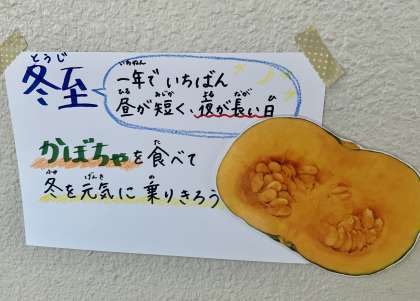 とうじ
冬至
いちねん
一年で いちばん
ひる みじか よる なが ひ
昼が短く、夜が長い日
た
かぼちゃを食べて
ふゆ げんき の
冬を元気に 乗りきろう